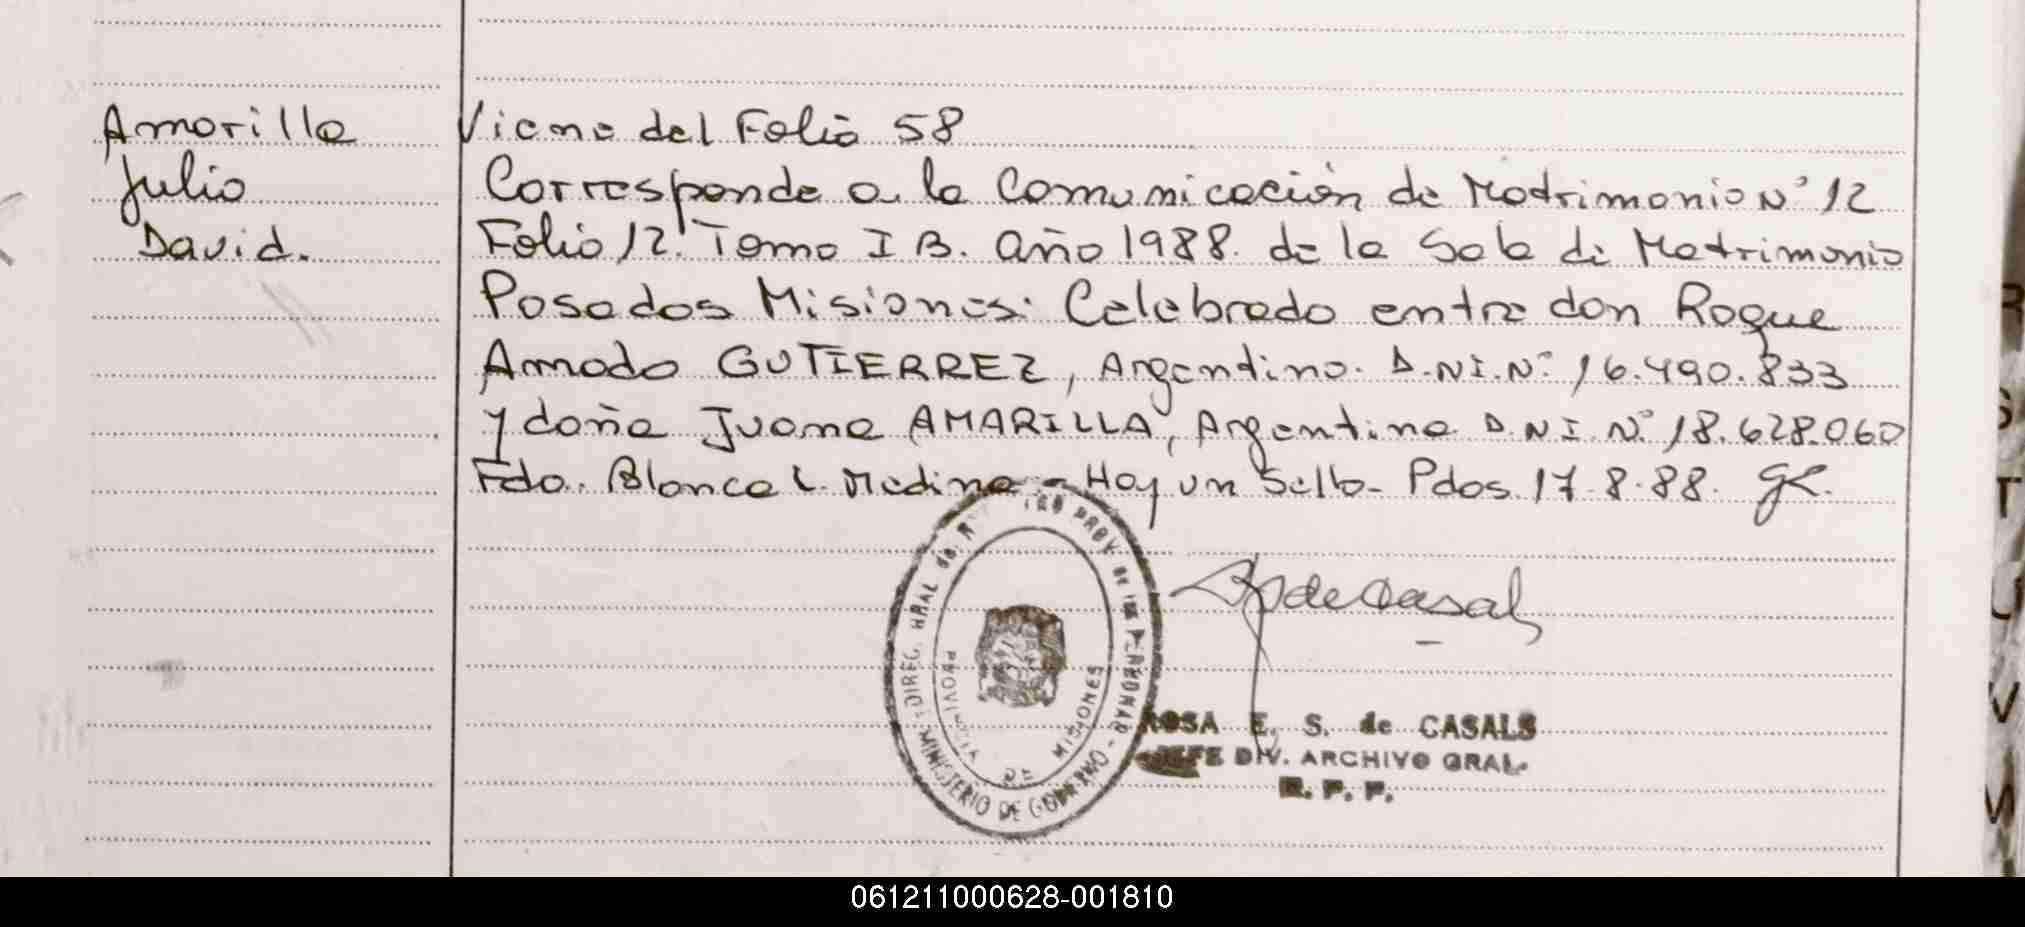 Amarilla
Julio
David.
Viene del Folio 58
Corresponde a la Comunicación de Matrimonio N° 12
Folio 12. Tomo I B. año 1988. de la Sala de Matrimonio
Posadas Misiones. Celebrado entre don Roque
Amado GUTIERREZ, Argentino. D.N.I. N° 16.490.833
y doña Juana AMARILLA, Argentina D.N.I. N° 18.628.060
Fdo. Blanca L. Medina - Hay un Sello - Pdas 17-8-88.
DIREC. GRAL de PROV de las PERSONAS - MINISTERIO DE GOBIERNO
PROVINCIA DE MISIONES
de Casals
ROSA E. S. de CASALS
JEFE DIV. ARCHIVO GRAL.
R. P. P.
R
S
T
U
V
061211000628-001810